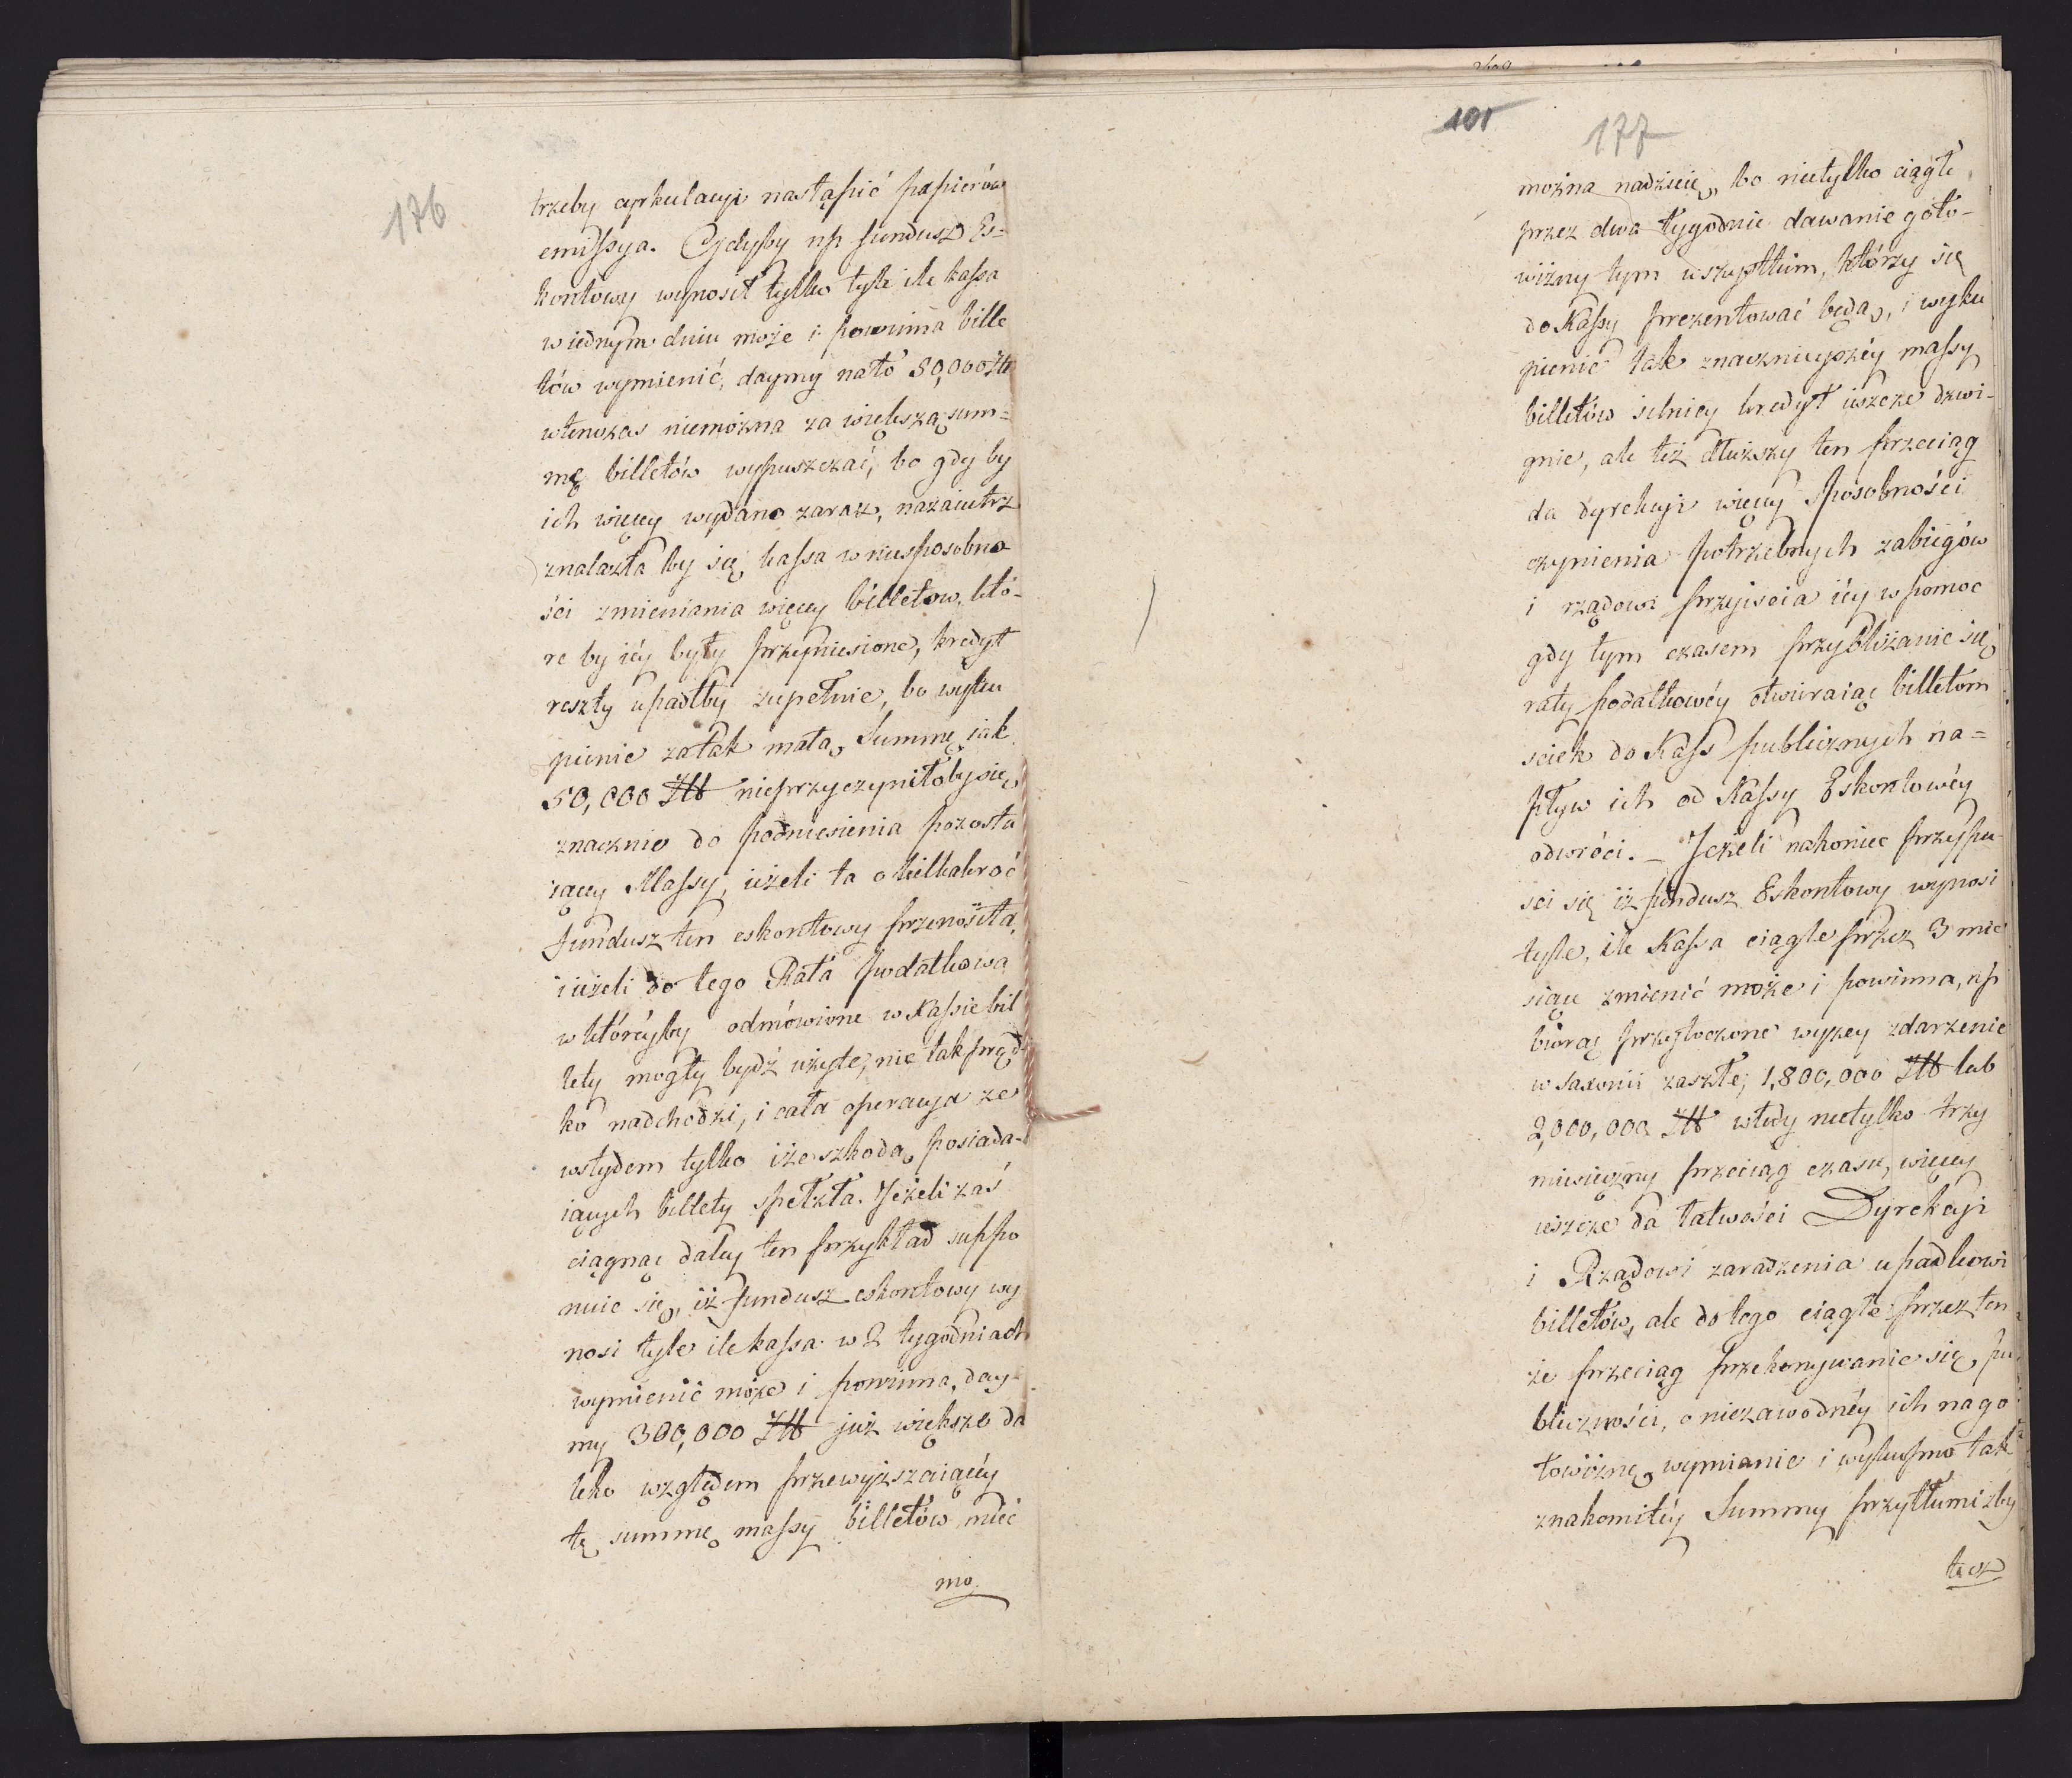 176
trzeby cyrkulacyi nastąpić papierów
emissya. Gdyby np fundusz Es=
kontowy wynosił tylko tyle ile kassa
w iednym dniu może i powinna bille
tów wymienić, daymy na to 50,000 Złł
wtenczas niemożna za większą sum=
mę billetów wypuszczać, bo gdy by
ich więcey wydano zaraz, nazaiutrz
znalazła by się kassa w niesposobno
ści zmieniania więcey billetow, któ-
re by iéy były przyniesione, kredyt
reszty upadłby zupełnie, bo wyku
pienie za tak małą Summę jak
50,000 Złł nieprzyczyniłoby się
znacznie do podniesienia pozosta
iącey Massy, ieżeli ta o kilkakroć
fundusz ten eskontowy przenosiła,
i ieżeli do tego Rata podatkowa
w któréyby odmówione w Kassie bil
lety mogły bydź użyte, nie tak pręd
ko nadchodzi, i cała operacya ze
wstydem tylko i ze szkodą posiada-
iących billety spełzła. Jeżeli zaś
ciągnąc daley ten przykład suppo
nuie się, iż fundusz eskontowy wy
nosi tyle ile kassa w 2 tygodniach
wymienić może i powinna, day-
my 300,000 Złł już większe da
leko względem przewyższaiącéy
tę summę massy billetów mieć
mo
101
177
można nadzieię, bo nietylko ciągłe
przez dwa tygodnie dawanie goto-
wizny tym wszystkim, którzy się
do Kassy prezentować będą, i wyku
pienie tak znacznieyszéy massy
billetów silniey kredyt ieszcze dzwi-
gnie, ale też dłuższy ten przeciąg
da dyrekcyi więcey sposobności
czynienia potrzebnych zabiegów
i rządowi przyiścia iéy w pomoc
gdy tym czasem przybliżanie się
raty podatkowéy otwieraiąc billetom
sciek do Kass publicznych na=
pływ ich od Kassy Eskontowéy
odwróci. – Jeżeli nakoniec przypu
sci się iż fundusz Eskontowy wynosi
tyle, ile Kassa ciągle przez 3 mie
siące zmienić może i powinna, np
biorąc przytoczone wyżey zdarzenie
w Saxonii zaszłe, 1,800,000 Złł lub
2,000,000 Złł wtedy nietylko trzy
miesięczny przeciąg czasu, więcey
ieszcze da łatwości Dyrekcyi
i Rządowi zaradzenia upadkowi
billetów, ale do tego ciągłe przez ten
że przeciąg przekonywanie się pu
bliczności, o niezawodnéy ich na go
towiznę wymianie i wykupno tak
znakomitéy Summy przytłumiżby
też